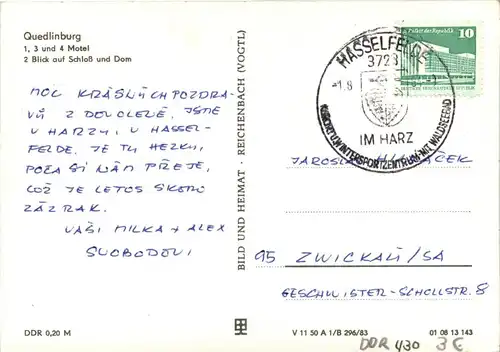 Quedlinburg
1, 3 und 4 Motel
2 Blick auf Schloß und Dom
MOC KRÁSNÝCH POZDRA-
VŮ Z DOVOLENÉ. JSME
V HARZU, V HASSEL-
FELDE. JE TU HEZKY,
POČASÍ NÁM PŘEJE,
COŽ JE LETOS SKORO
ZÁZRAK.
VAŠI MILKA + ALEX
SVOBODOVI
DDR 0,20 M
BILD UND HEIMAT · REICHENBACH (VOGTL)
HASSELFELDE
3723
-1.8
IM HARZ
KURORT U. WINTERSPORTZENTRUM MIT WALDSEEBAD
Palast der Republik
10
JAROSLAV
95 ZWICKAU/SA
GESCHWISTER-SCHOLLSTR. 8
V 11 50 A 1/B 296/83
01 08 13 143
DDR 430 3€